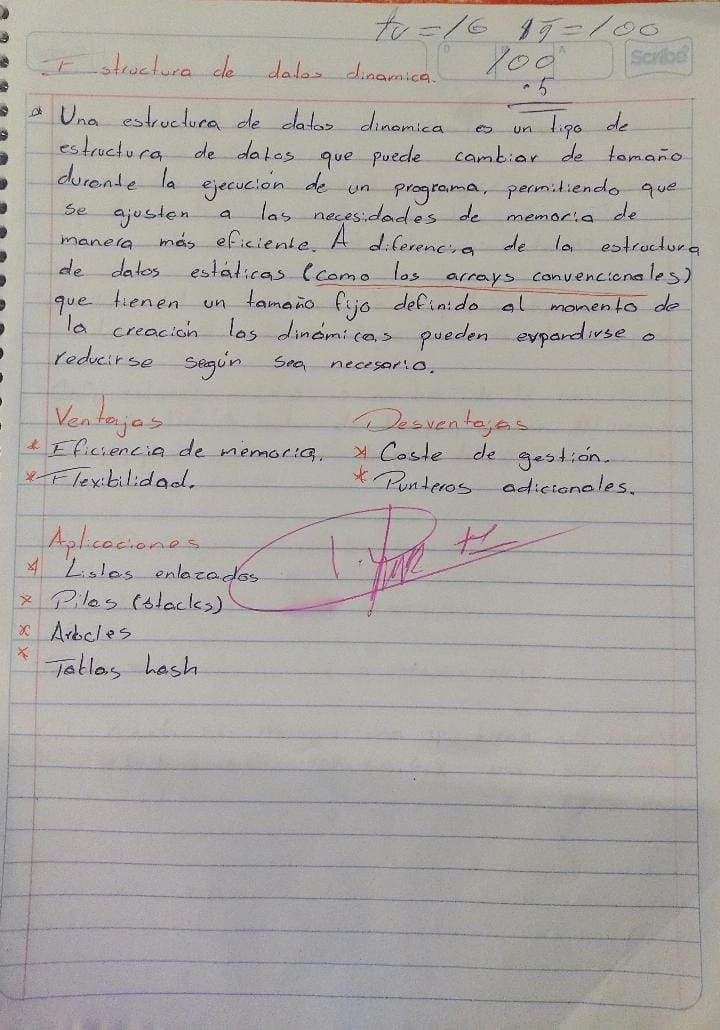 tv = 16 1q = 100
100
.5
Scribe
Estructura de datos dinamica.
Una estructura de datos dinamica es un tipo de
estructura de datos que puede cambiar de tamaño
durante la ejecución de un programa, permitiendo que
se ajusten a las necesidades de memoria de
manera más eficiente. A diferencia de la estructura
de datos estáticas (como los arrays convencionales)
que tienen un tamaño fijo definido al momento de
la creación las dinámicas pueden expandirse o
reducirse según sea necesario.
Ventajas Desventajas
* Eficiencia de memoria. * Coste de gestión.
* Flexibilidad. * Punteros adicionales.
Aplicaciones
* Listas enlazados
* Pilas (stacks)
* Arboles
* Tablas hash